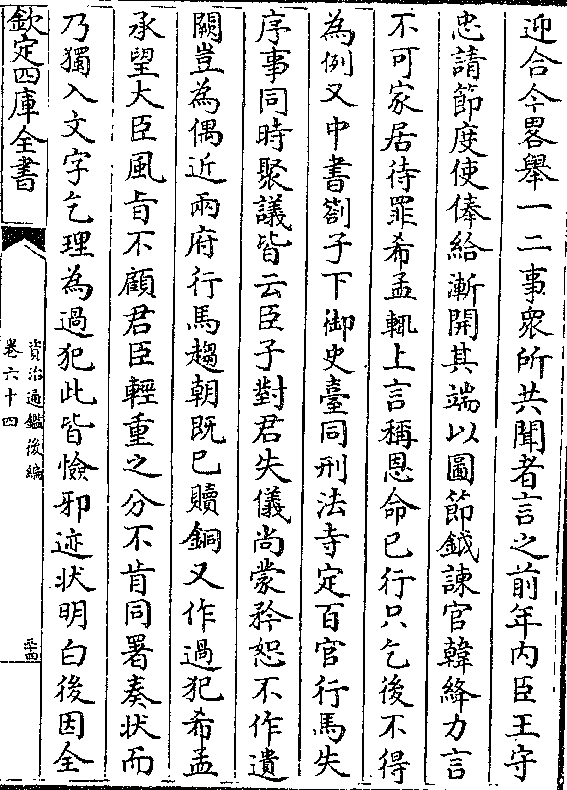 迎合今畧舉一二事衆所共聞者言之前年内臣王守
忠請節度使俸給漸開其端以圖節鉞諫官韓絳力言
不可家居待罪希孟輒上言稱恩命已行只乞後不得
為例又中書劄子下御史臺同刑法寺定百官行馬失
序事同時聚議皆云臣子對君失儀尚蒙矜恕不作遺
闕豈為偶近兩府行馬趨朝既已贖銅又作過犯希孟
承望大臣風旨不顧君臣輕重之分不肯同署奏狀而
乃獨入文字乞理為過犯此皆憸邪迹状明白後因全
欽定四庫全書
資治通鑑後編
卷六十四
二十四